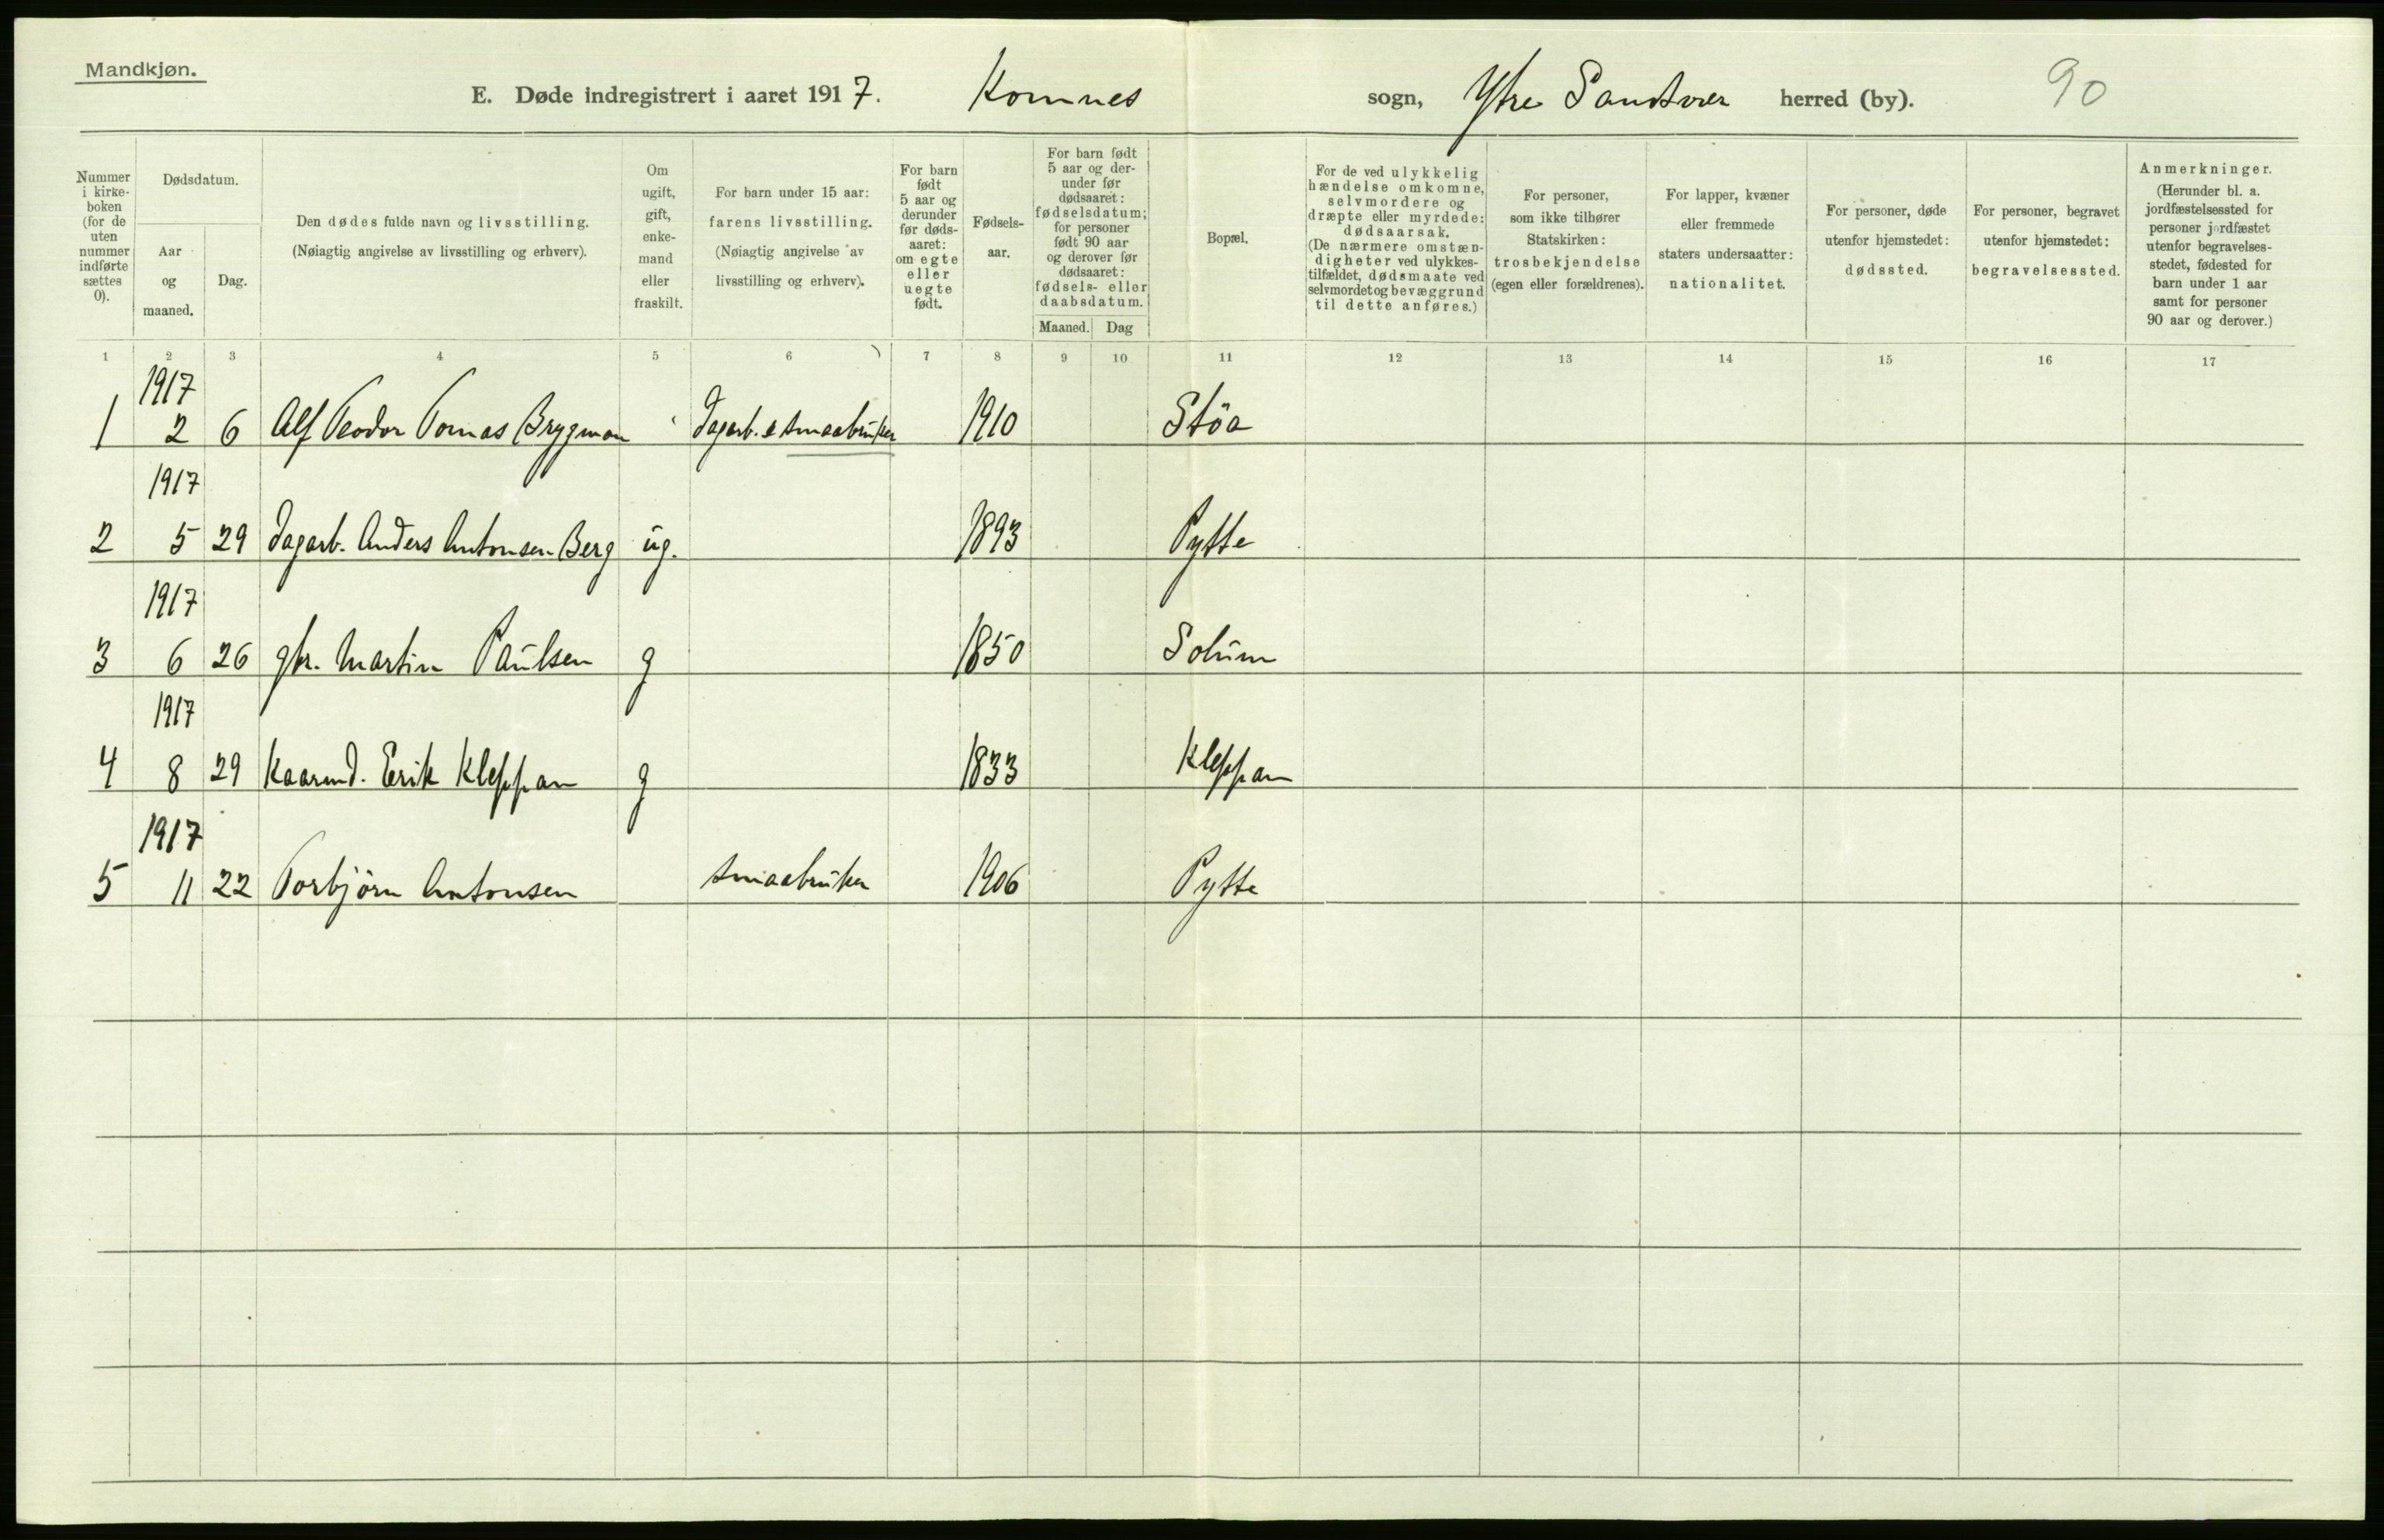 Mandkjøn.
E. Døde indregistrert i aaret 1917. Komnes sogn, Ytre Sandsvær herred (by). 90
Nummer i kirke-boken (for de uten nummer indførte sættes 0).
Dødsdatum.
Aar og maaned.
Dag.
Den dødes fulde navn og livsstilling. (Nøiagtig angivelse av livsstilling og erhverv).
Om ugift, gift, enke-mand eller fraskilt.
For barn under 15 aar: farens livsstilling. (Nøiagtig angivelse av livsstilling og erhverv).
For barn født 5 aar og derunder før døds-aaret: om egte eller uegte født.
Fødsels-aar.
For barn født 5 aar og der-under før dødsaaret: fødselsdatum; for personer født 90 aar og derover før dødsaaret: fødsels- eller daabsdatum.
Maaned. Dag
Bopæl.
For de ved ulykkelig hændelse omkomne, selvmordere og dræpte eller myrdede: dødsaarsak. (De nærmere omstæn-digheter ved ulykkes-tilfældet, dødsmaate ved selvmordet og bevæggrund til dette anføres.)
For personer, som ikke tilhører Statskirken: trosbekjendelse (egen eller forældrenes).
For lapper, kvæner eller fremmede staters undersaatter: nationalitet.
For personer, døde utenfor hjemstedet: dødssted.
For personer, begravet utenfor hjemstedet: begravelsessted.
Anmerkninger. (Herunder bl. a. jordfæstelsessted for personer jordfæstet utenfor begravelses-stedet, fødested for barn under 1 aar samt for personer 90 aar og derover.)
1 2 3 4 5 6 7 8 9 10 11 12 13 14 15 16 17
1917
1 2 6 Alf Teodor Tomas Brygman Dagarb. & smaabruker 1910 Stöa
1917
2 5 29 Dagarb. Anders Antonsen Berg ug. 1893 Pytte
1917
3 6 26 gbr. Martin Paulsen g 1850 Solum
1917
4 8 29 Kaarmd. Erik Kleppan g 1833 Kleppan
1917
5 11 22 Torbjörn Antonsen smaabruker 1906 Pytte